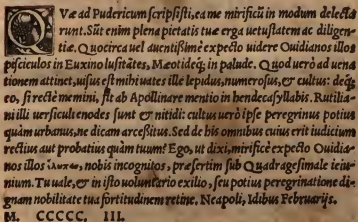 QVæ ad Pudericum scripsisti, ea me mirificū in modum delectarunt. Sūt enim plena pietatis tuæ erga uetustatem ac diligentiæ. Quocirca uel auentissimè expecto uidere Ouidianos illos pisciculos in Euxino lusitātes, Mæotideq; in palude. Quod uerò ad uenationem attinet, uisus est mihi uates ille lepidus, numerosus, & cultus: deq; eo, si rectè memini, fit ab Apollinare mentio in hendecasyllabis. Rutiliani illi uersiculi enodes sunt & nitidi: cultus uerò ipse peregrinus potius quàm urbanus, ne dicam arcessitus. Sed de his omnibus cuius erit iudicium rectius aut probatius quàm tuum? Ego, ut dixi, mirificè expecto Ouidianos illos nobis incognitos, præsertim sub Quadragesimale ieiunium. Tu uale, & in isto uoluntario exilio, seu potius peregrinatione dignam nobilitate tua fortitudinem retine, Neapoli, Idibus Februarijs.
M. CCCCC, III.